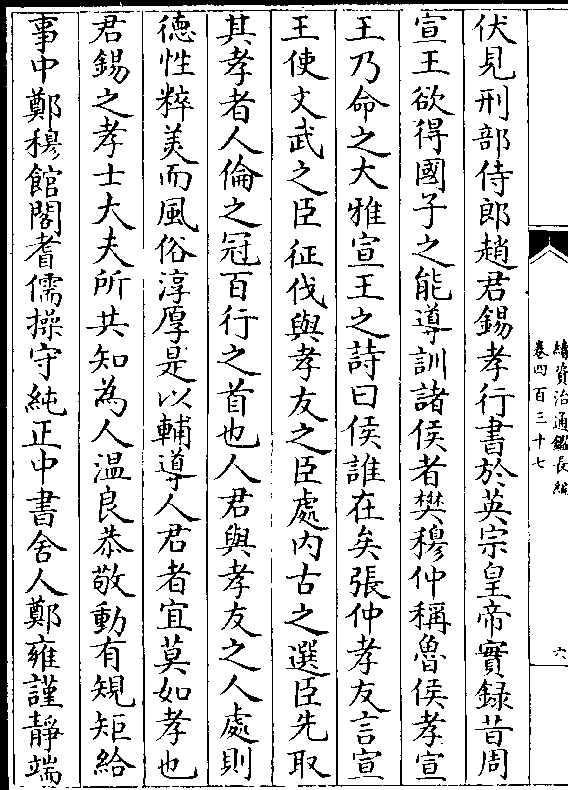 續資治通鑑長編
卷四百三十七
六
伏見刑部侍郎趙君錫孝行書於英宗皇帝實録昔周
宣王欲得國子之能導訓諸侯者樊穆仲稱魯侯孝宣
王乃命之大雅宣王之詩曰侯誰在矣張仲孝友言宣
王使文武之臣征伐與孝友之臣處内古之選臣先取
其孝者人倫之冠百行之首也人君與孝友之人處則
德性粹美而風俗淳厚是以輔導人君者宜莫如孝也
君錫之孝士大夫所共知為人温良恭敬動有規矩給
事中鄭穆館閣耆儒操守純正中書舍人鄭雍謹靜端